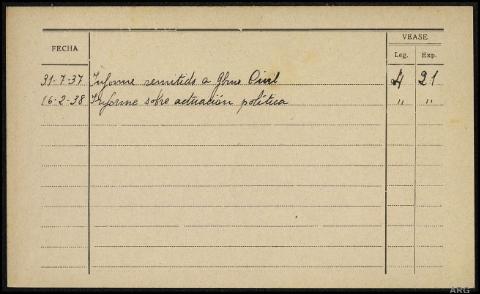 FECHA
VEASE
Leg. Exp.
31-7-37 Informe remitido a Gbno Civil 4 21
16-2-38 Informe sobre actuación política " "
ARG